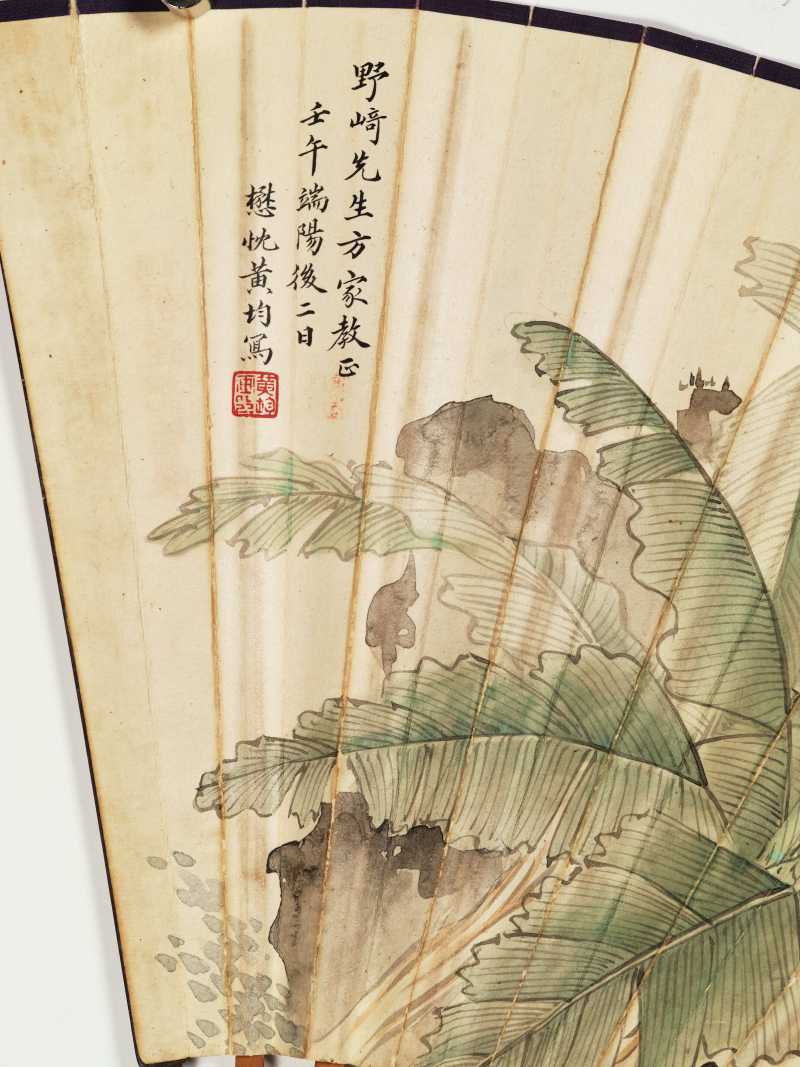 野﨑先生方家教正
壬午端陽後二日
懋忱黃均寫